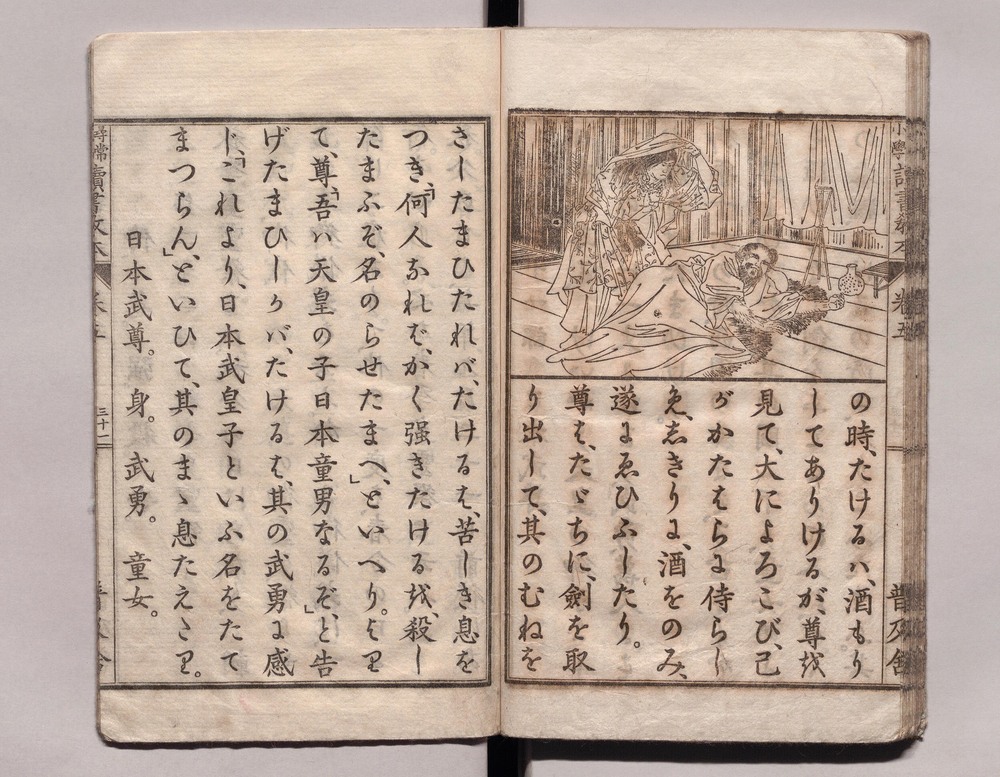 小學讀書教本　卷五　普及舍
の時、たけるハ、酒もり
してありけるが、尊を
見て、大によろこび、己
がかたはらに侍らし
め、しきりに、酒をのみ、
遂にゑひふしたり。
尊は、たゞちに、劍を取
り出して、其のむねを
さしたまひたれバ、たけるは、苦しき息を
つき、「何人なれば、かく强きたけるを、殺し
たまふぞ、名のらせたまへ、」といへり。より
て、尊、「吾ハ天皇の子日本童男なるぞ、」と告
げたまひしかバ、たけるは、其の武勇に感
じ、「これより、日本武皇子といふ名をたて
まつらん、」といひて、其のまゝ息たえたり。
日本武尊。身。武勇。童女。
尋常讀書教本　卷五　三十一　普及舍